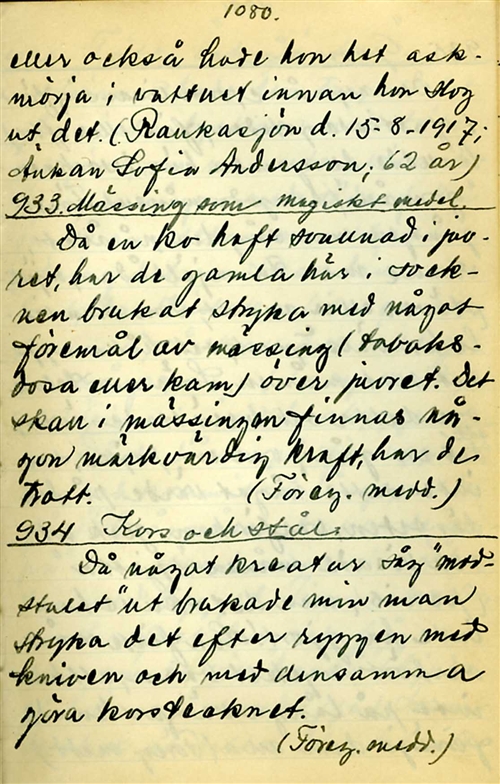 1080.
eller också hade hon het ask-
mörja i vattnet innan hon slog
ut det. (Rankasjön d. 15-8-1917;
Änkan Sofia Andersson; 62 år)
933. Mässing som magiskt medel.
Då en ko haft svullnad i juv-
ret, har de gamla här i sock-
nen brukat stryka med något
föremål av mässing (tobaks-
dosa eller kam) över juvret. Det
skall i mässingen finnas nå-
gon märkvärdig kraft, har de
trott. (Föreg. medd.)
934 Kors och stål.
Då något kreatur såg "mod-
stulet" ut brukade min man
stryka det efter ryggen med
kniven och med densamma
göra korstecknet.
(Föreg. medd.)